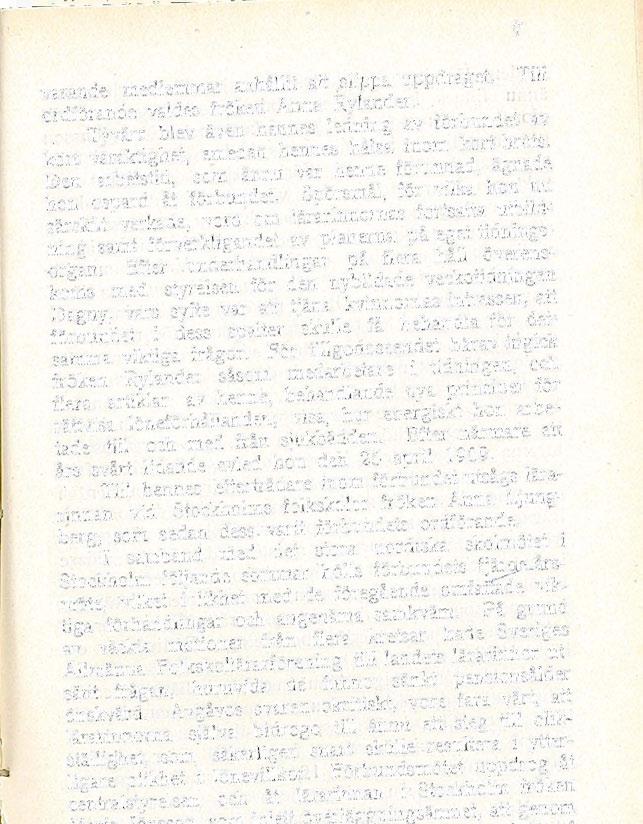 varande medlemmar anhållit att slippa uppdraget. Till
ordförande valdes fröken Anna Rylander.
Tyvärr blev även hennes ledning av förbundet av
kort varaktighet, emedan hennes hälsa inom kort bröts.
Den arbetstid, som ännu var henne förunnad, ägnade
hon ospard åt förbundet. Spörsmål, för vilka hon nu
särskilt verkade, voro om lärarinnornas fortsatta utbild-
ning samt förverkligandet av planerna på eget tidnings-
organ. Efter underhandlingar på flera håll överens-
koms med styrelsen för den nybildade veckotidningen
Dagny, vars syfte var att tjäna kvinnornas intressen, att
förbundet i dess spalter skulle få behandla för det-
samma viktiga frågor. För tillgodoseendet härav
fröken Rylander såsom medarbetare i tidningen, och
flera artiklar av henne, behandlande nya principer för
rättvisa löneförhållanden, visa, hur energiskt hon arbe-
tade till och med från sjukbädden. Efter närmare ett
års svårt lidande avled hon den 26 april 1909.
Till hennes efterträdare inom förbundet utsågs lära-
rinnan vid Stockholms folkskolor fröken Anna Ljung-
berg, som sedan dess varit förbundets ordförande.
I samband med det stora nordiska skolmötet i
Stockholm följande sommar hölls förbundets års-
möte, vilket i likhet med de föregående omfattade vik-
tiga förhandlingar och angenäma samkväm. På grund
av väckta motioner från flera kretsar hade Sveriges
Allmänna Folkskollärarförening till landets lärarinnor ut-
sänt frågan, huruvida de funno sänkt pensionsålder
önskvärd. Avgåves svaren vore fara värt, att
lärarinnorna själva bidrogo till ännu ett steg till olik-
ställighet, som säkerligen snart skulle resultera i ytter-
ligare olikhet i lönevillkor. Förbundsmötet uppdrog åt
centralstyrelsen och åt lärarinnan i Stockholm fröken
att genom